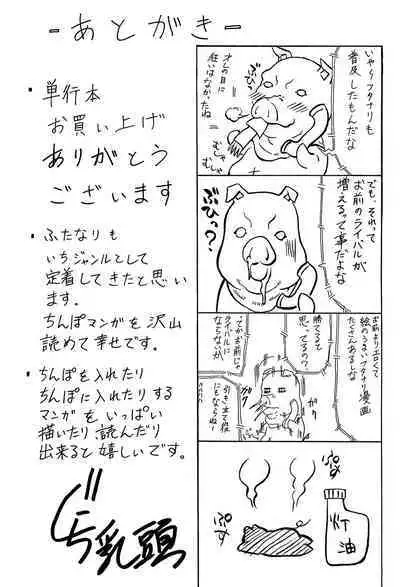 -あとがき-
・単行本
お買い上げ
ありがとう
ございます
・ふたなりも
いちジャンルとして
定着してきたと思い
ます。
ちんぽマンガを沢山
読めて幸せです。
・ちんぽを入れたり
ちんぽに入れたりする
マンガをいっぱい
描いたり、読んだり
出来ると嬉しいです。
乳頭
いや〜フタナリも
普及したもんだな
オレの目に
狂いはなかったね
むしゃ
むしゃ
でも、それって
お前のライバルが
増えるって事だよな
ぶひっ?
お前よりエロくて
絵のうまいフタナリ漫画
たくさんあるしな
勝ててると
思ってるの?
ってかお前じゃ
ライバルに
ならないか
引き立て役
にもならねー
ガク
ガク
ぷす
ぷす
灯油